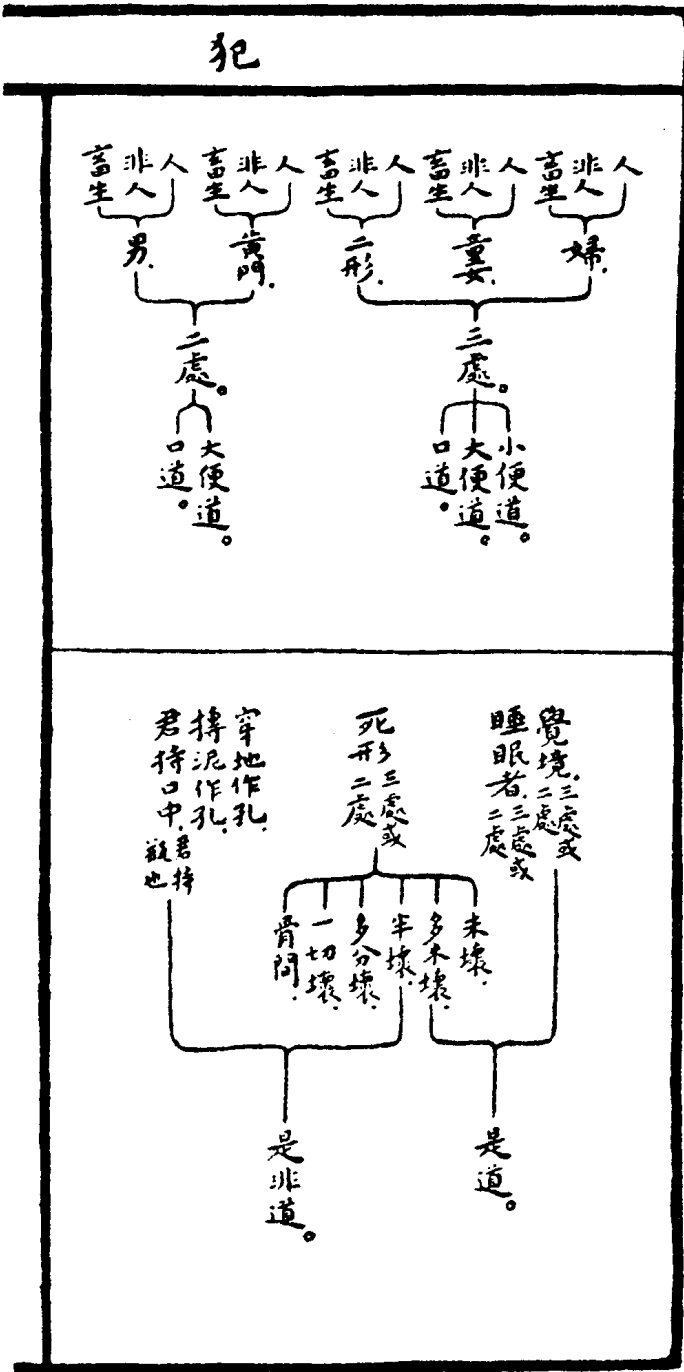 犯
人
非人
畜生
婦.
人
非人
畜生
童女.
人
非人
畜生
二形.
人
非人
畜生
黃門.
人
非人
畜生
男.
三處。
小便道。
大便道。
口道。
二處。
大便道。
口道。
覺境.三處或二處
睡眠者.三處或二處
死形三處或二處
未壞.
多未壞.
半壞.
多分壞.
一切壞.
骨間.
穿地作孔.
摶泥作孔.
君持口中.君持瓶也
是道。
是非道。